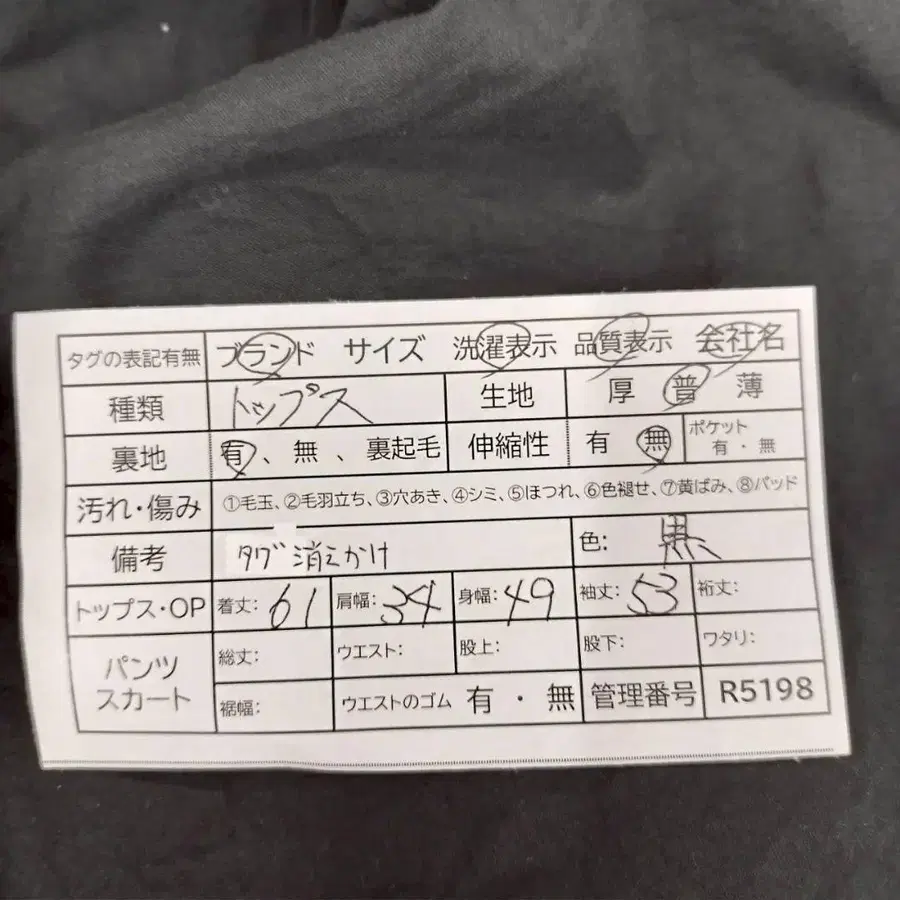 タグの表記有無 ブランド サイズ 洗濯表示 品質表示 会社名
種類 トップス 生地 厚 普 薄
裏地 有、無、裏起毛 伸縮性 有 無 ポケット 有・無
汚れ・傷み ①毛玉、②毛羽立ち、③穴あき、④シミ、⑤ほつれ、⑥色褪せ、⑦黄ばみ、⑧パッド
備考 タグ消えかけ 色: 黒
トップス・OP 着丈: 61 肩幅: 34 身幅: 49 袖丈: 53 裄丈:
パンツ スカート 総丈: ウエスト: 股上: 股下: ワタリ:
裾幅: ウエストのゴム 有・無 管理番号 R5198